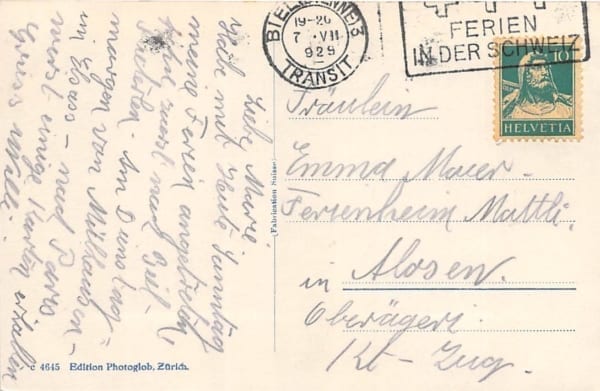 BIEL-BIENNE 3
19-20
7. VII
929
TRANSIT
FERIEN
IN DER SCHWEIZ
10
HELVETIA
Fräulein
Emma Maier.
Ferienheim Mattli.
in Alosen.
Oberägeri.
Kt-Zug.
Fabrication Suisse
Liebe
Habe mit Heute Sonntag
meine Ferien angetreten,
zuerst nach Biel-
Am Dienstag
morgen von Mülhausen-
in Elsass - nach Paris
einige Karten erhalten
Gruss Walti.
c 4645 Edition Photoglob, Zürich.